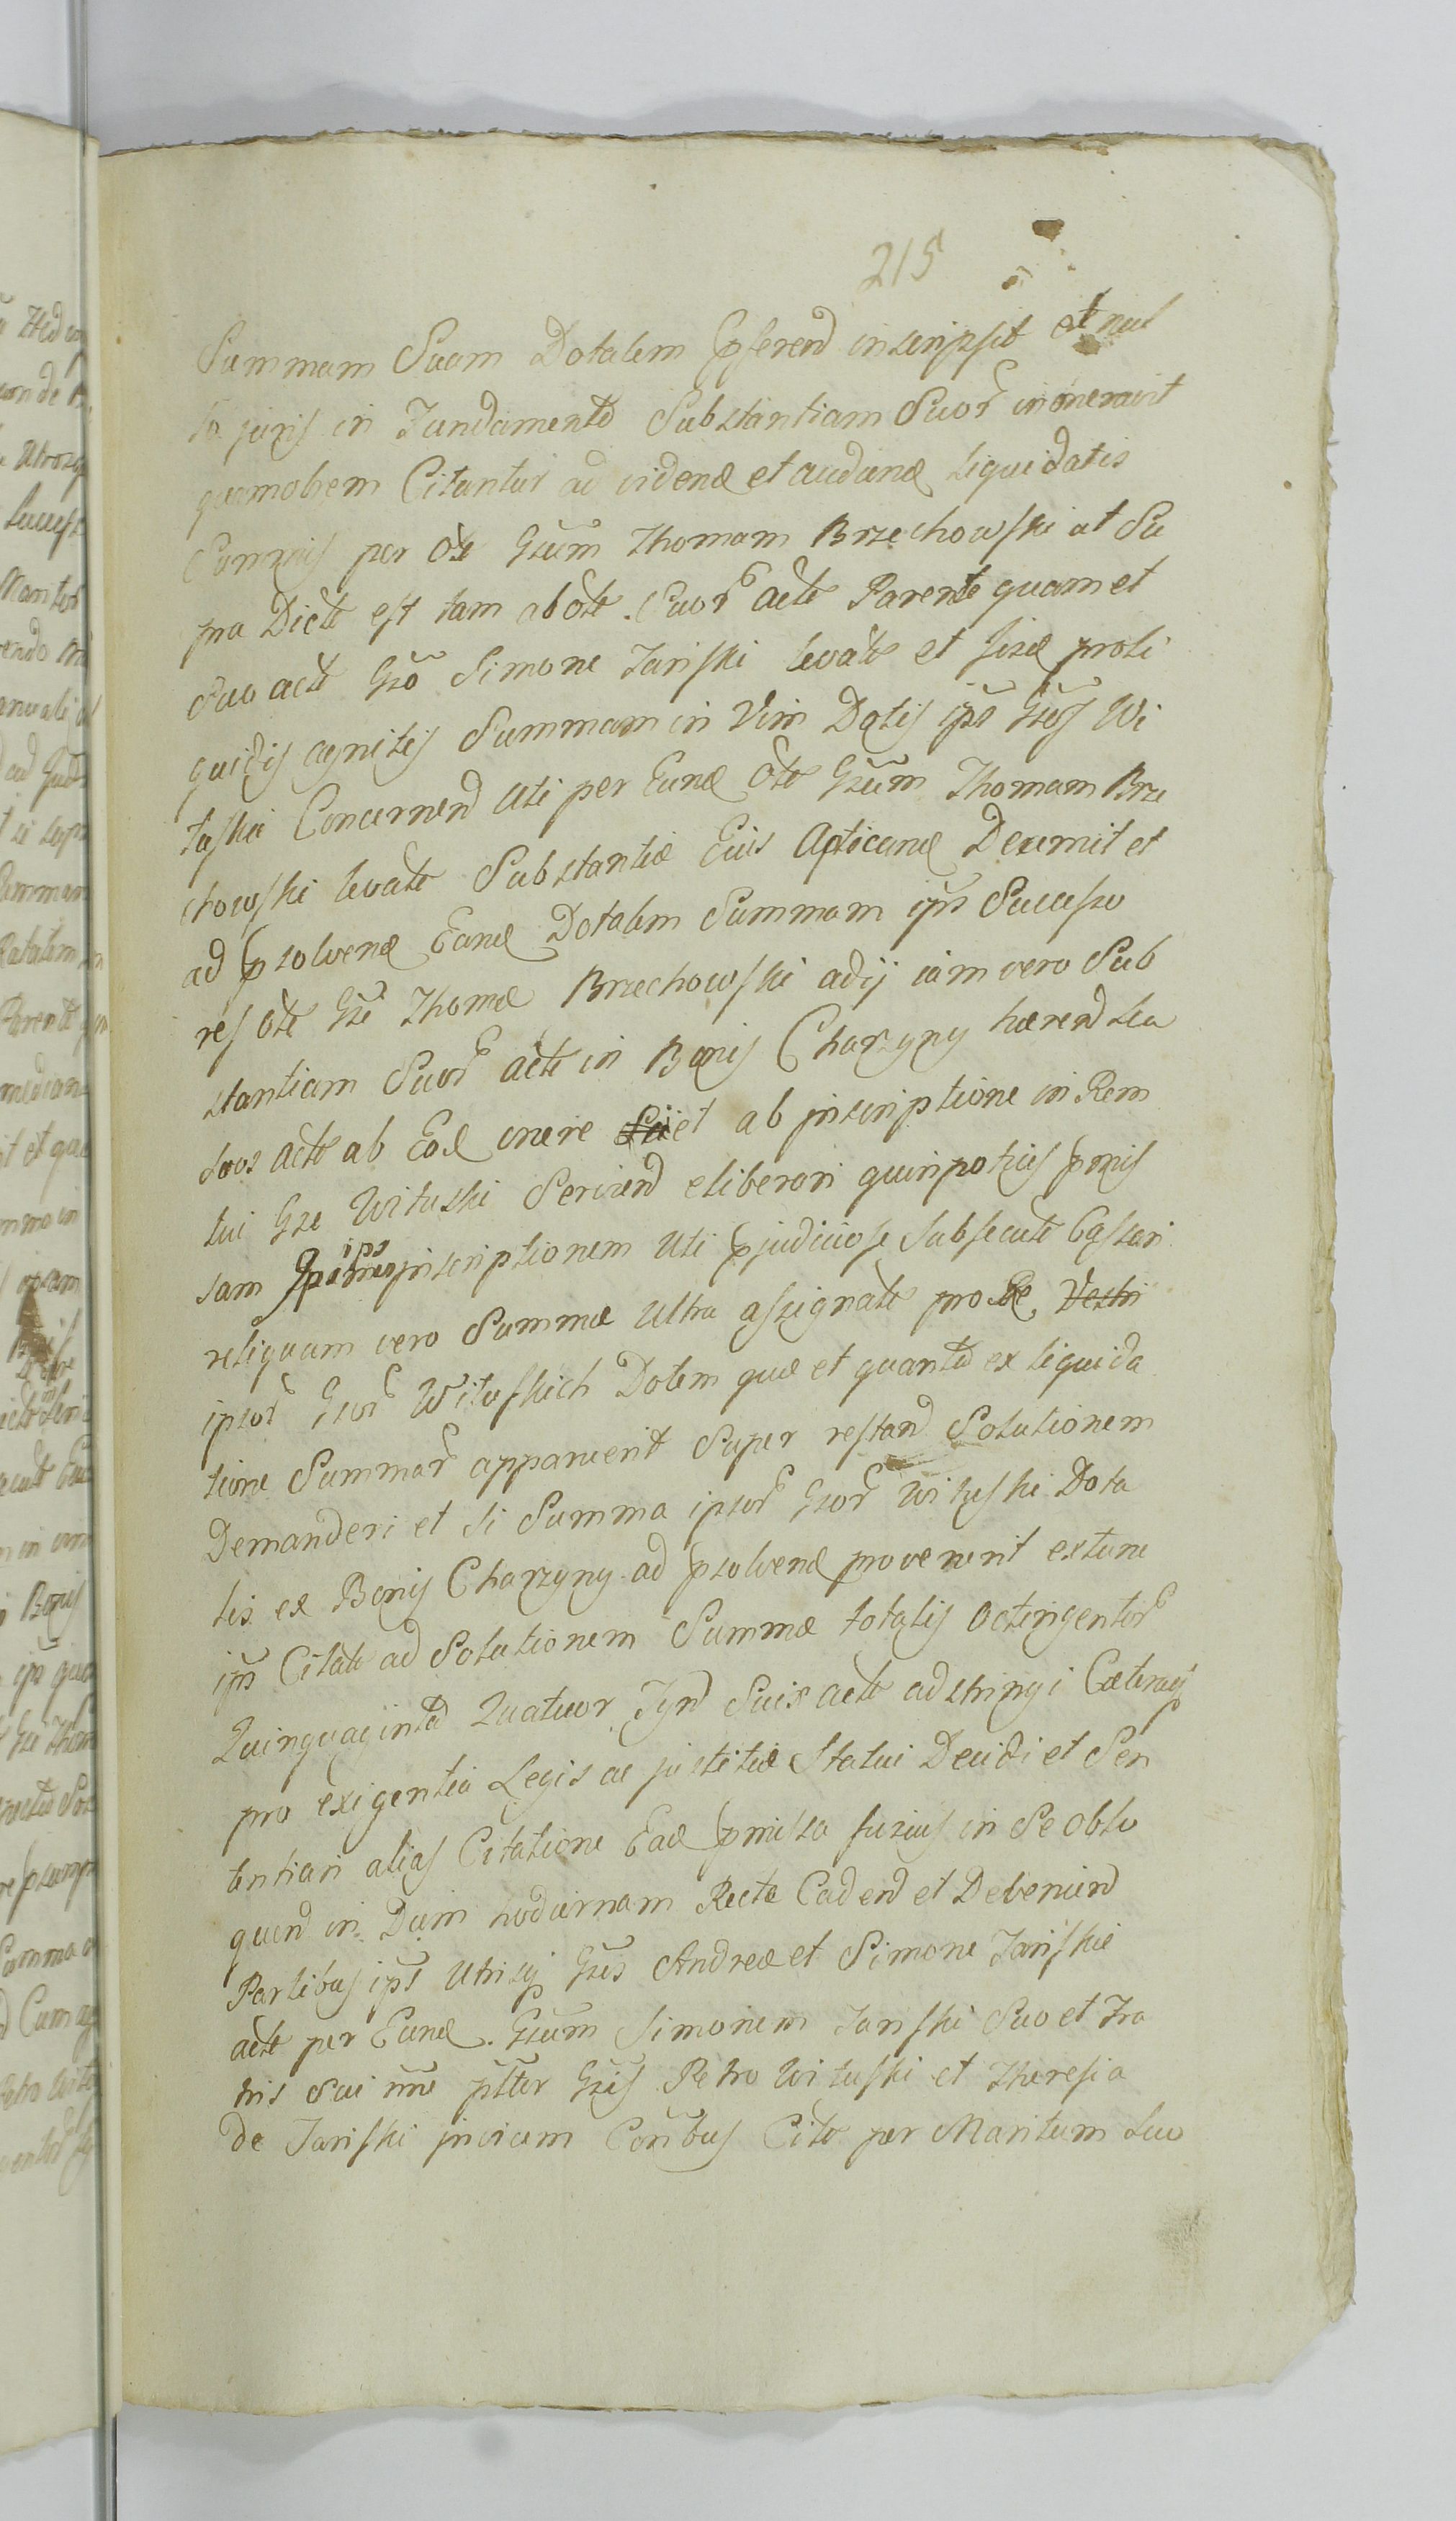 215
Summam Suam Dotalem Pferend inscripsit et nul
lo juris in Fundamento Substantiam Suor inoneravit
quamobrem Citantur ad videnđ et audienđ liquidatis
Summis per Olĩ Gsum Thomam Brzechowski ut Su
pra Dictũ est tam ab olĩ Suor acte Parente quam et
Suo actĩ Gso Simone Jariski levatĩ et sisđ proli
quidis agnitis Summam in Vim Dotis ips Gsos Wi
tuski Concernend uti per Eunđ Olĩ Gsum Thomam Brze
chowski levatĩ Substantiæ Eius Applicanđ Decerni et
ad Psolvenđ Eanđ Dotalem Summam ips Succesšo
res olĩ Gsi Thomæ Brzechowski adij iam vero Sub
stantiam Suor actĩ in Bonis Charzyny hærend sea
suos actĩ ab Eođ onere et ab inscriptione in Rem
tui Gse Wituski Serviend eliberari quinpotius Pmis
sam ips inscriptionem uti Pjudiciose subsecutĩ Cassari
reliquam vero Summæ ultra assignatĩ pro Re
ipsor Gsor Wituskich Dotem quæ et quanta ex liquida
tione Summar apparuerit Super restand Solutionem
Demanderi et si Summa ipsor Gsor Wituski Dota
lis ex Bonis Charzyny ad Psolvenđ provenerit extunc
ips Citatĩ ad Solutionem Summæ totalis octingentor
Quinquaginta Quatuor Tynf Suis actĩ adstringi Cæteraq
pro exigentia Legis ac justitiæ Statui Decidi et Sen
tentiari alias Citatione Eađ Pmissa fusius in Se oblo
quend in Diem hodiernam Recte Cadend et Deveniend
Partibus ips utrisq Gsis Andrea et Simone Jariskie
actĩ per Eunđ Gsum Simonem Jariski Suo et Fra
tris sui nne pltter Gsis Petro Wituski et Theresia
de Jariski invicem Conbus Citĩ per Maritum suo